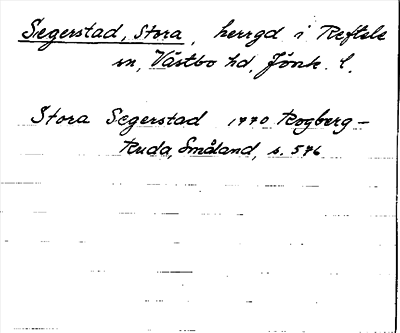 Segerstad, Stora, herrgd i Reftele
sn, Västbo hd, Jönk. l.
Stora Segerstad 1770 Rogberg-
Ruda, Småland, s. 576